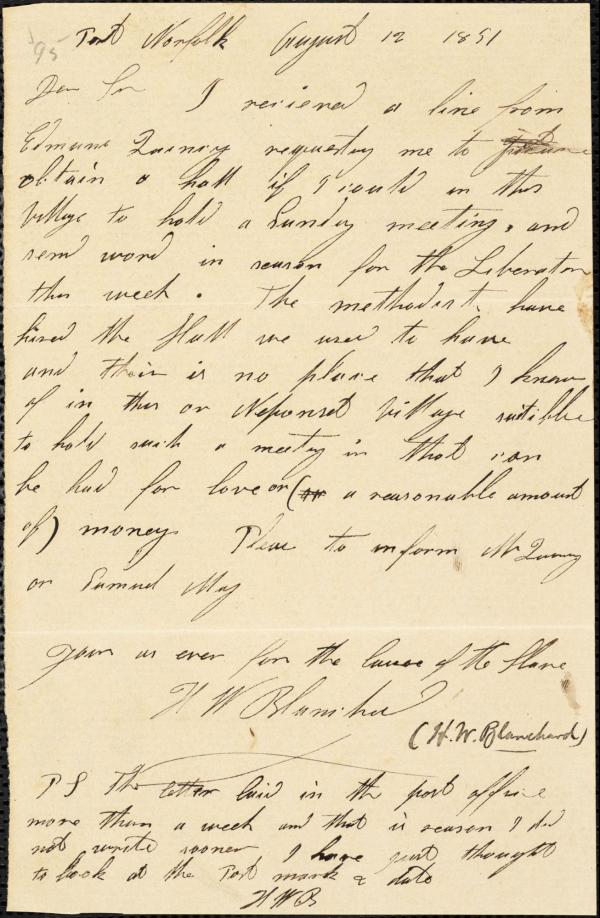 95
Port Norfolk August 12 1851
Dear Sir I recieved a line from
Edmund Quincy requesting me to
obtain a hall if I could in this
Village to hold a Sunday meeting, and
send word in season for the Liberator
this week. The methodist have
hired the Hall we used to have
and their is no place that I know
of in this or Neponset Village suitible
to hold such a meeting in that can
be had for love or ( a reasonable amount
of) money Please to inform Mr Quincy
or Samuel May
Yours as ever for the cause of the Slave
H W Blanchard
(H.W. Blanchard)
PS The letter laid in the post office
more than a week and that is reason I did
not write sooner I have just thought
to look at the Post mark & date
HWB